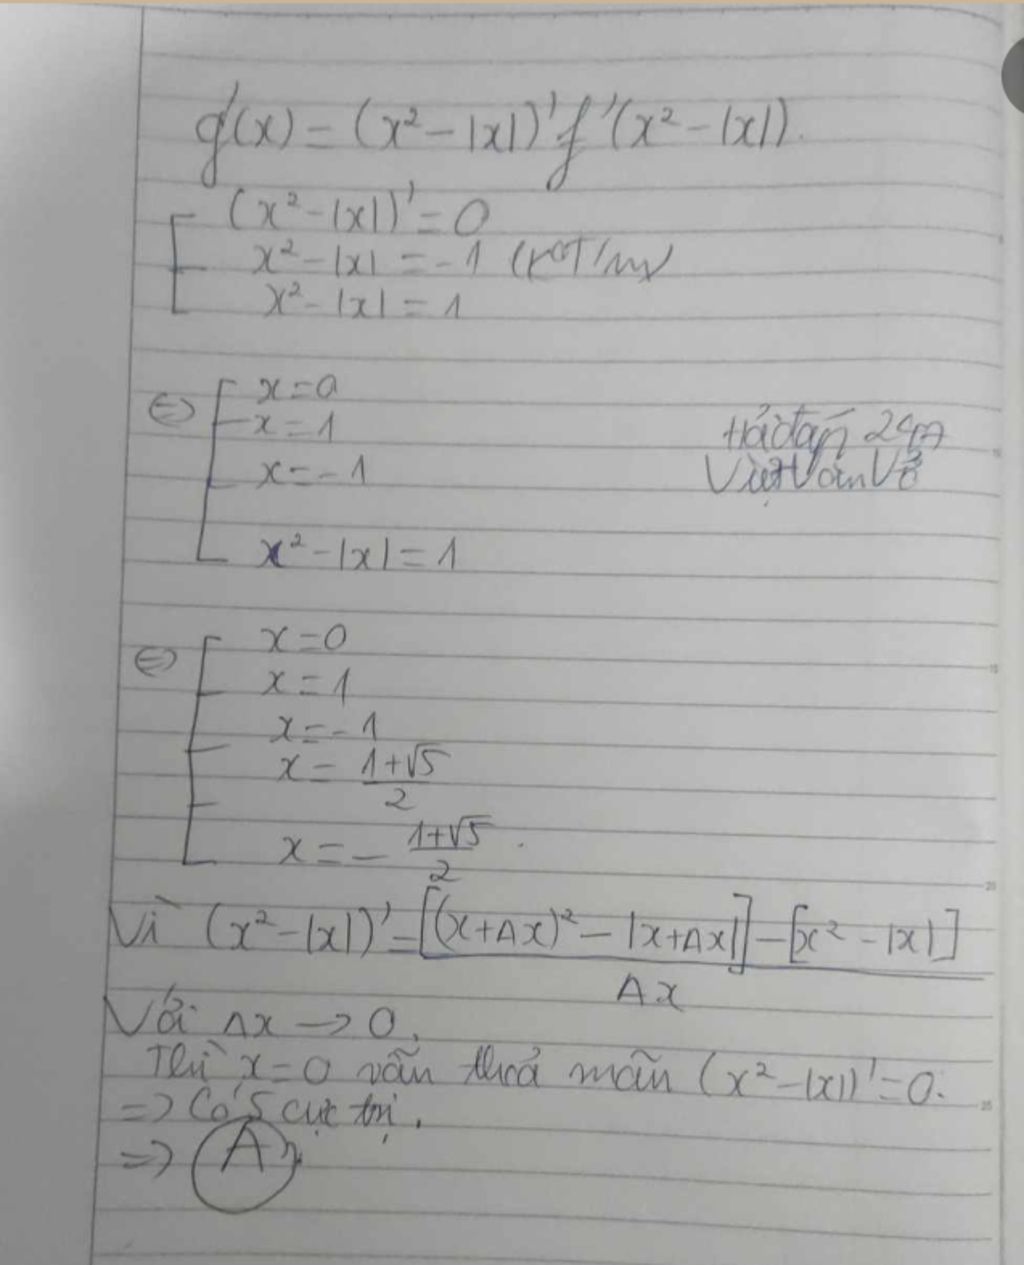 g'(x) = (x² - |x|)' f'(x² - |x|).
(x² - |x|)' = 0
x² - |x| = -1
x² - |x| = 1
⇔ x = 0
x = 1
x = -1
x² - |x| = 1
Việt Vấn Vở
⇔ x = 0
x = 1
x = -1
x = (1+√5)/2
x = - (1+√5)/2.
Vì (x² - |x|)' = ([(x+Δx)² - |x+Δx|] - [x² - |x|])/Δx
Với Δx → 0.
Thì x = 0 vẫn thoả mãn (x² - |x|)' = 0.
=> Có 5 cực trị.
=> A